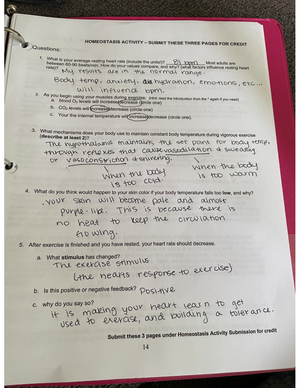 HOMEOSTASIS ACTIVITY – SUBMIT THESE THREE PAGES FOR CREDIT
Questions:
1. What is your average resting heart rate (include the units)? 81 bpm Most adults are
between 60-90 beats/min. How do your values compare, and why? (what factors influence resting heart
rate)? My results are in the normal range.
Body temp, anxiety, hydration, emotions, etc...
will influence bpm.
2. As you begin using your muscles during exercise: (Hint: read the introduction from the * again if you need)
a. blood O₂ levels will increase/decrease (circle one)
b. CO₂ levels will increase/decrease (circle one)
c. Your internal temperature will increase/decrease (circle one).
3. What mechanisms does your body use to maintain constant body temperature during vigorous exercise
(describe at least 2)?
The hypothalamus maintains the set point for body temp.
through reflexes that cause vasodilation & sweating
or vasoconstriction & shivering.
when the body
is too cold.
when the body
is too warm
4. What do you think would happen to your skin color if your body temperature falls too low, and why?
your skin will become pale and almost
purple-like. This is because there is
no heat to keep the circulation
flowing.
5. After exercise is finished and you have rested, your heart rate should decrease.
a. What stimulus has changed?
The exercise stimulus
(the hearts response to exercise)
b. Is this positive or negative feedback? Positive
c. why do you say so?
It is making your heart learn to get
used to exercise, and building a tolerance.
Submit these 3 pages under Homeostasis Activity Submission for credit
14